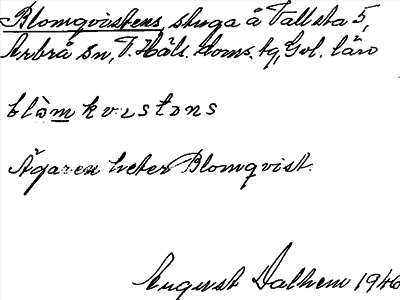 Blomqvistens, stuga å Vallsta 5,
Arbrå sn, V. Häls. doms. tg, Gvl. län
Ägaren heter Blomqvist.
August Dalhem 1946